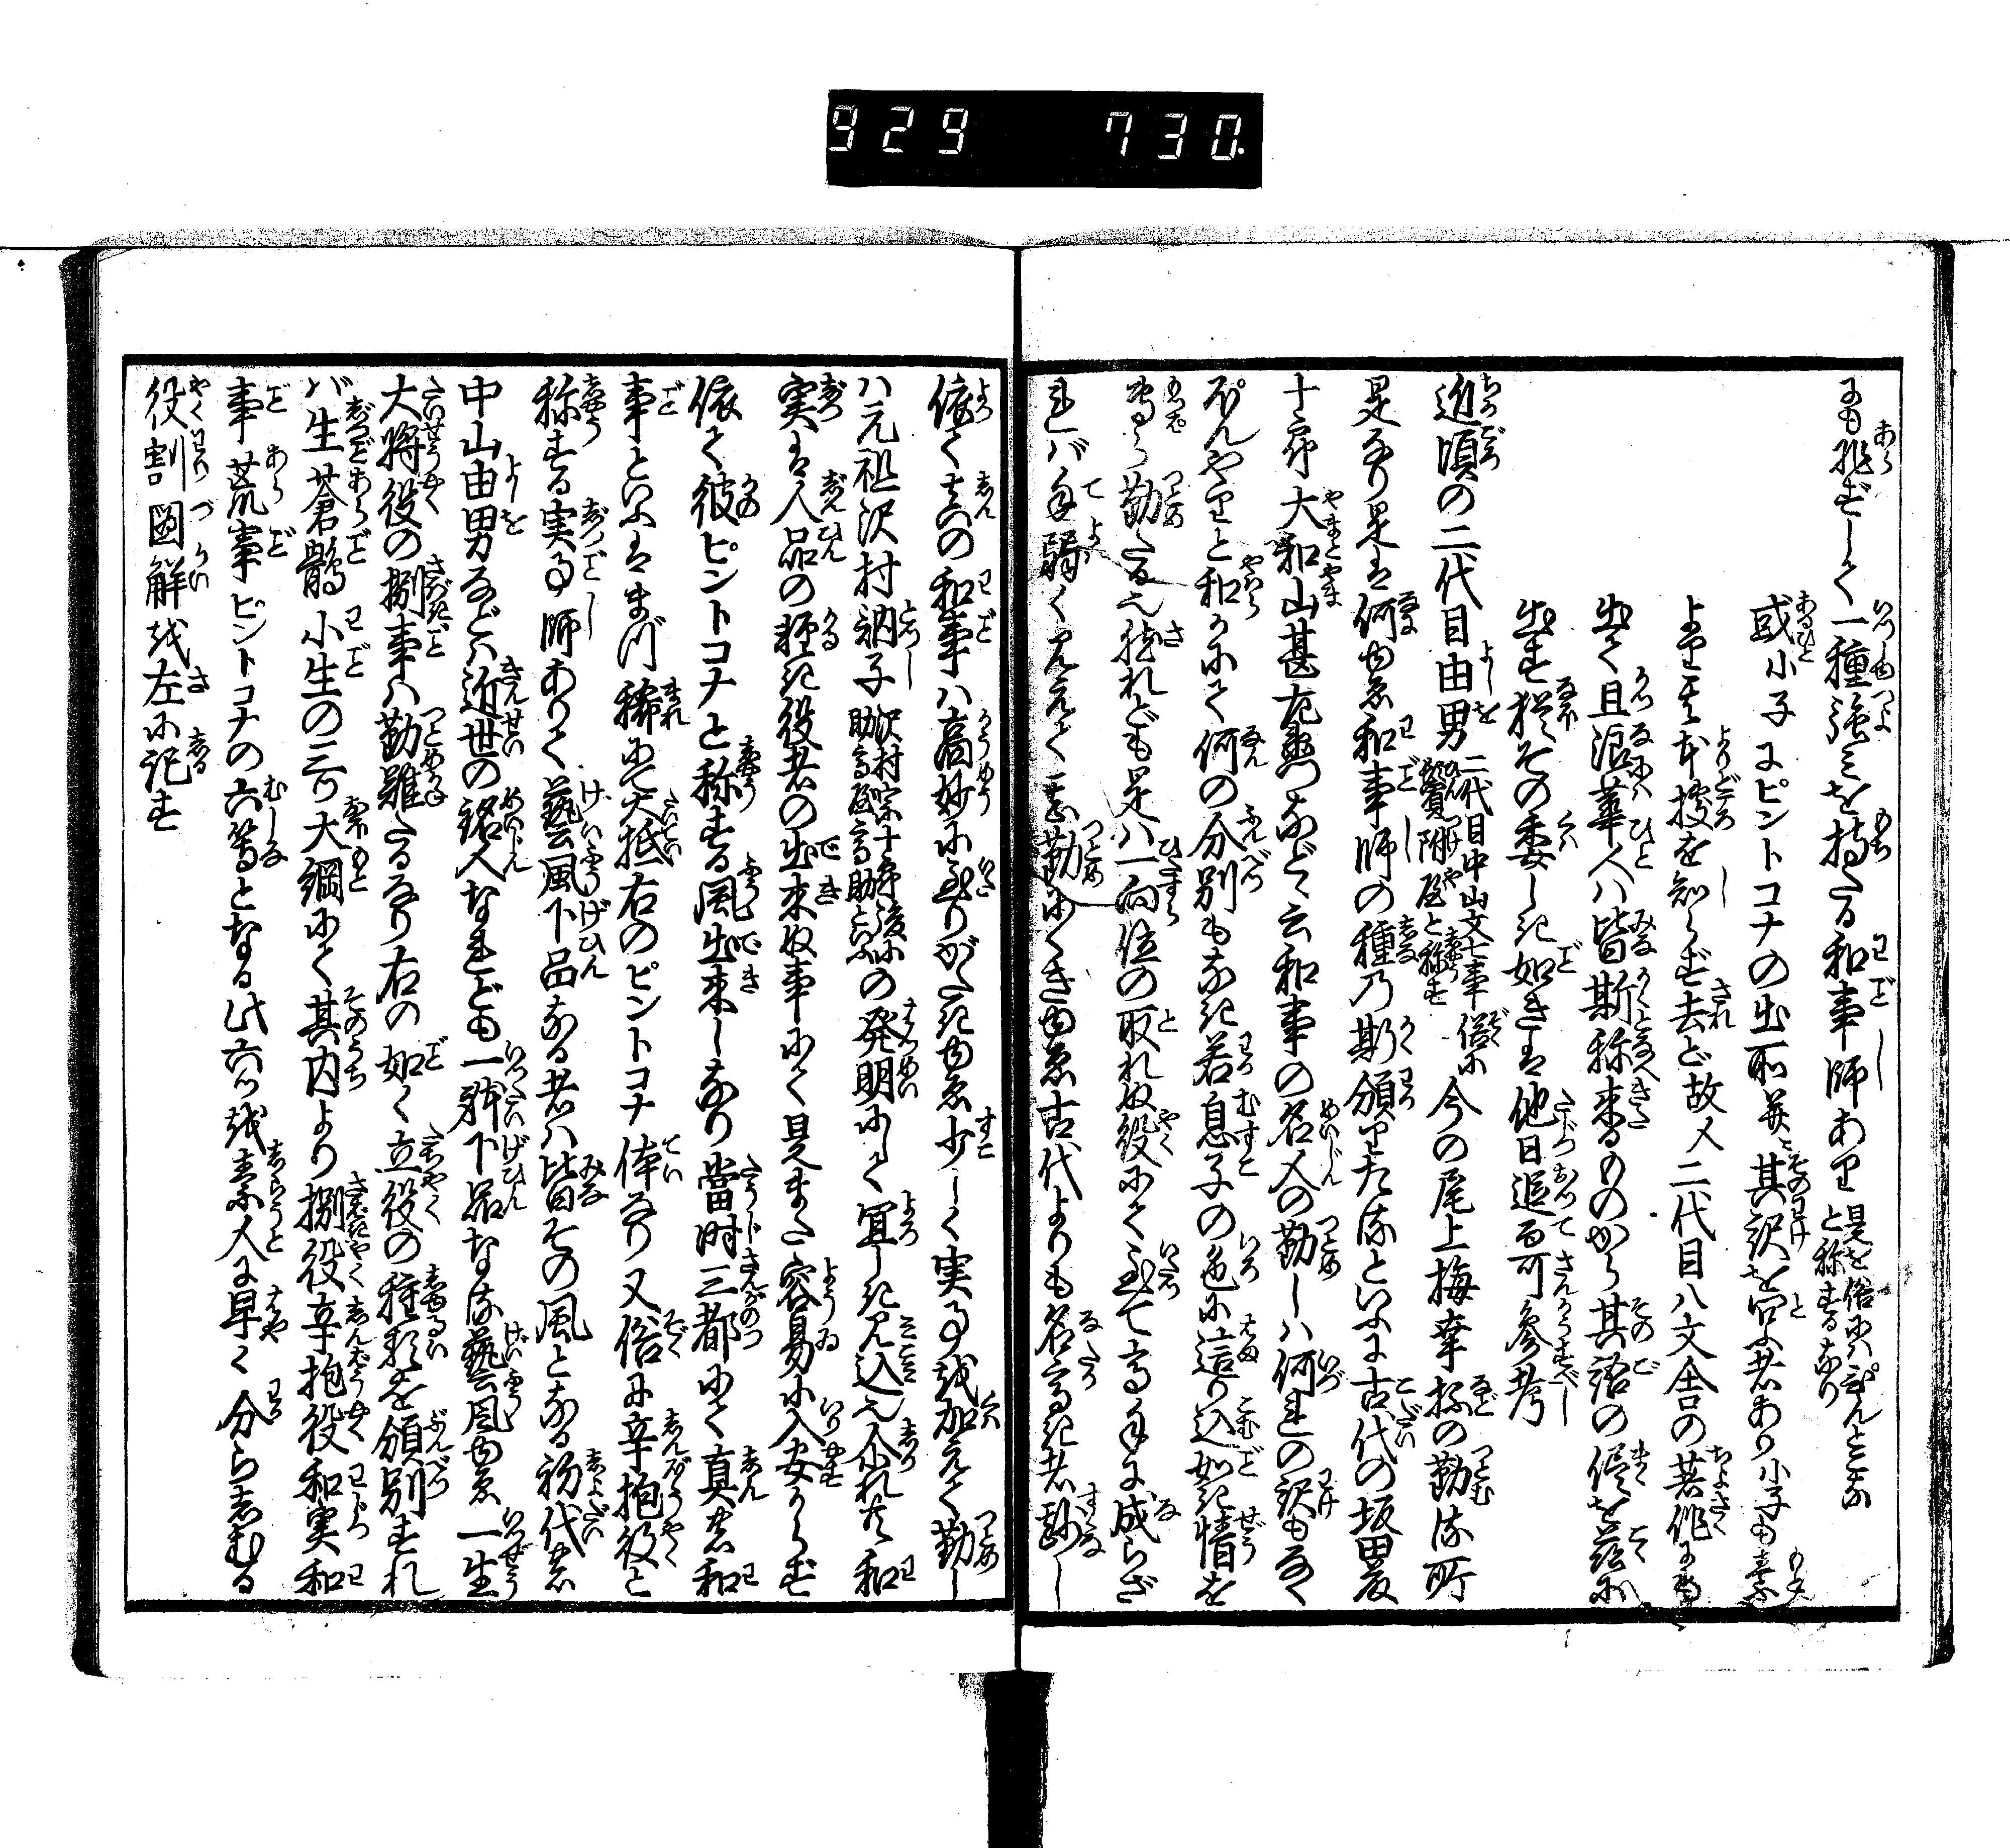 929 730.
にも非ずして一種強みを持たる和事師あり是を俗にぴんとこなと称するなり
或小子にピントコナの出所并に其訳を問者あり小子も素
より其本拠を知らず去ど故人二代目八文舎の著作にも
出て且浪華人は皆斯称来るものから其語の侭を茲に
出す猶その委しき如きは他日追而可参考
近頃の二代目由男二代目中山文七事俗に鬢附屋と称す今の尾上梅幸抔の勤る所
是なり是は何ゆゑ和事師の種乃斯頒りたるといふに古代の坂田藤
十郎大和山甚左衛門などゝ云和事の名人の勤しは何れの訳もなく
ぼんやりと和かにて何の分別もなき若息子の色に這り込如き情を
専ら勤たる也然れども是は一向位の取れぬ役にて至て高手に成らざ
れば手弱く見えて甚勤にくきゆゑ古代よりも名高き者尠し
依て真の和事は高妙に至りがたきゆゑ少しく実事を加えて勤し
は元祖沢村訥子沢村宗十郎後に助高屋高助といふの発明にして宜しき見込也尓れ共和
実は人品の軽き役者の出来ぬ事にて見またて容易に入安からず
依て彼ピントコナと称する風出来しなり當時三都にて真の和
事といふはまづ稀にて大抵右のピントコナ体なり又俗に辛抱役と
称する実事師ありて藝風下品なる者は皆その風となる初代の
中山由男などは近世の銘人なれども一体下品なる藝風ゆゑ一生
大将役の捌事は勤難たるなり右の如く立役の種類を頒別すれ
ば生蒼鶻小生の三つ大綱にて其内より捌役辛抱役和実和
事荒事ピントコナの六箇となる此六つを素人に早く分らしむる
役割図解を左に記す